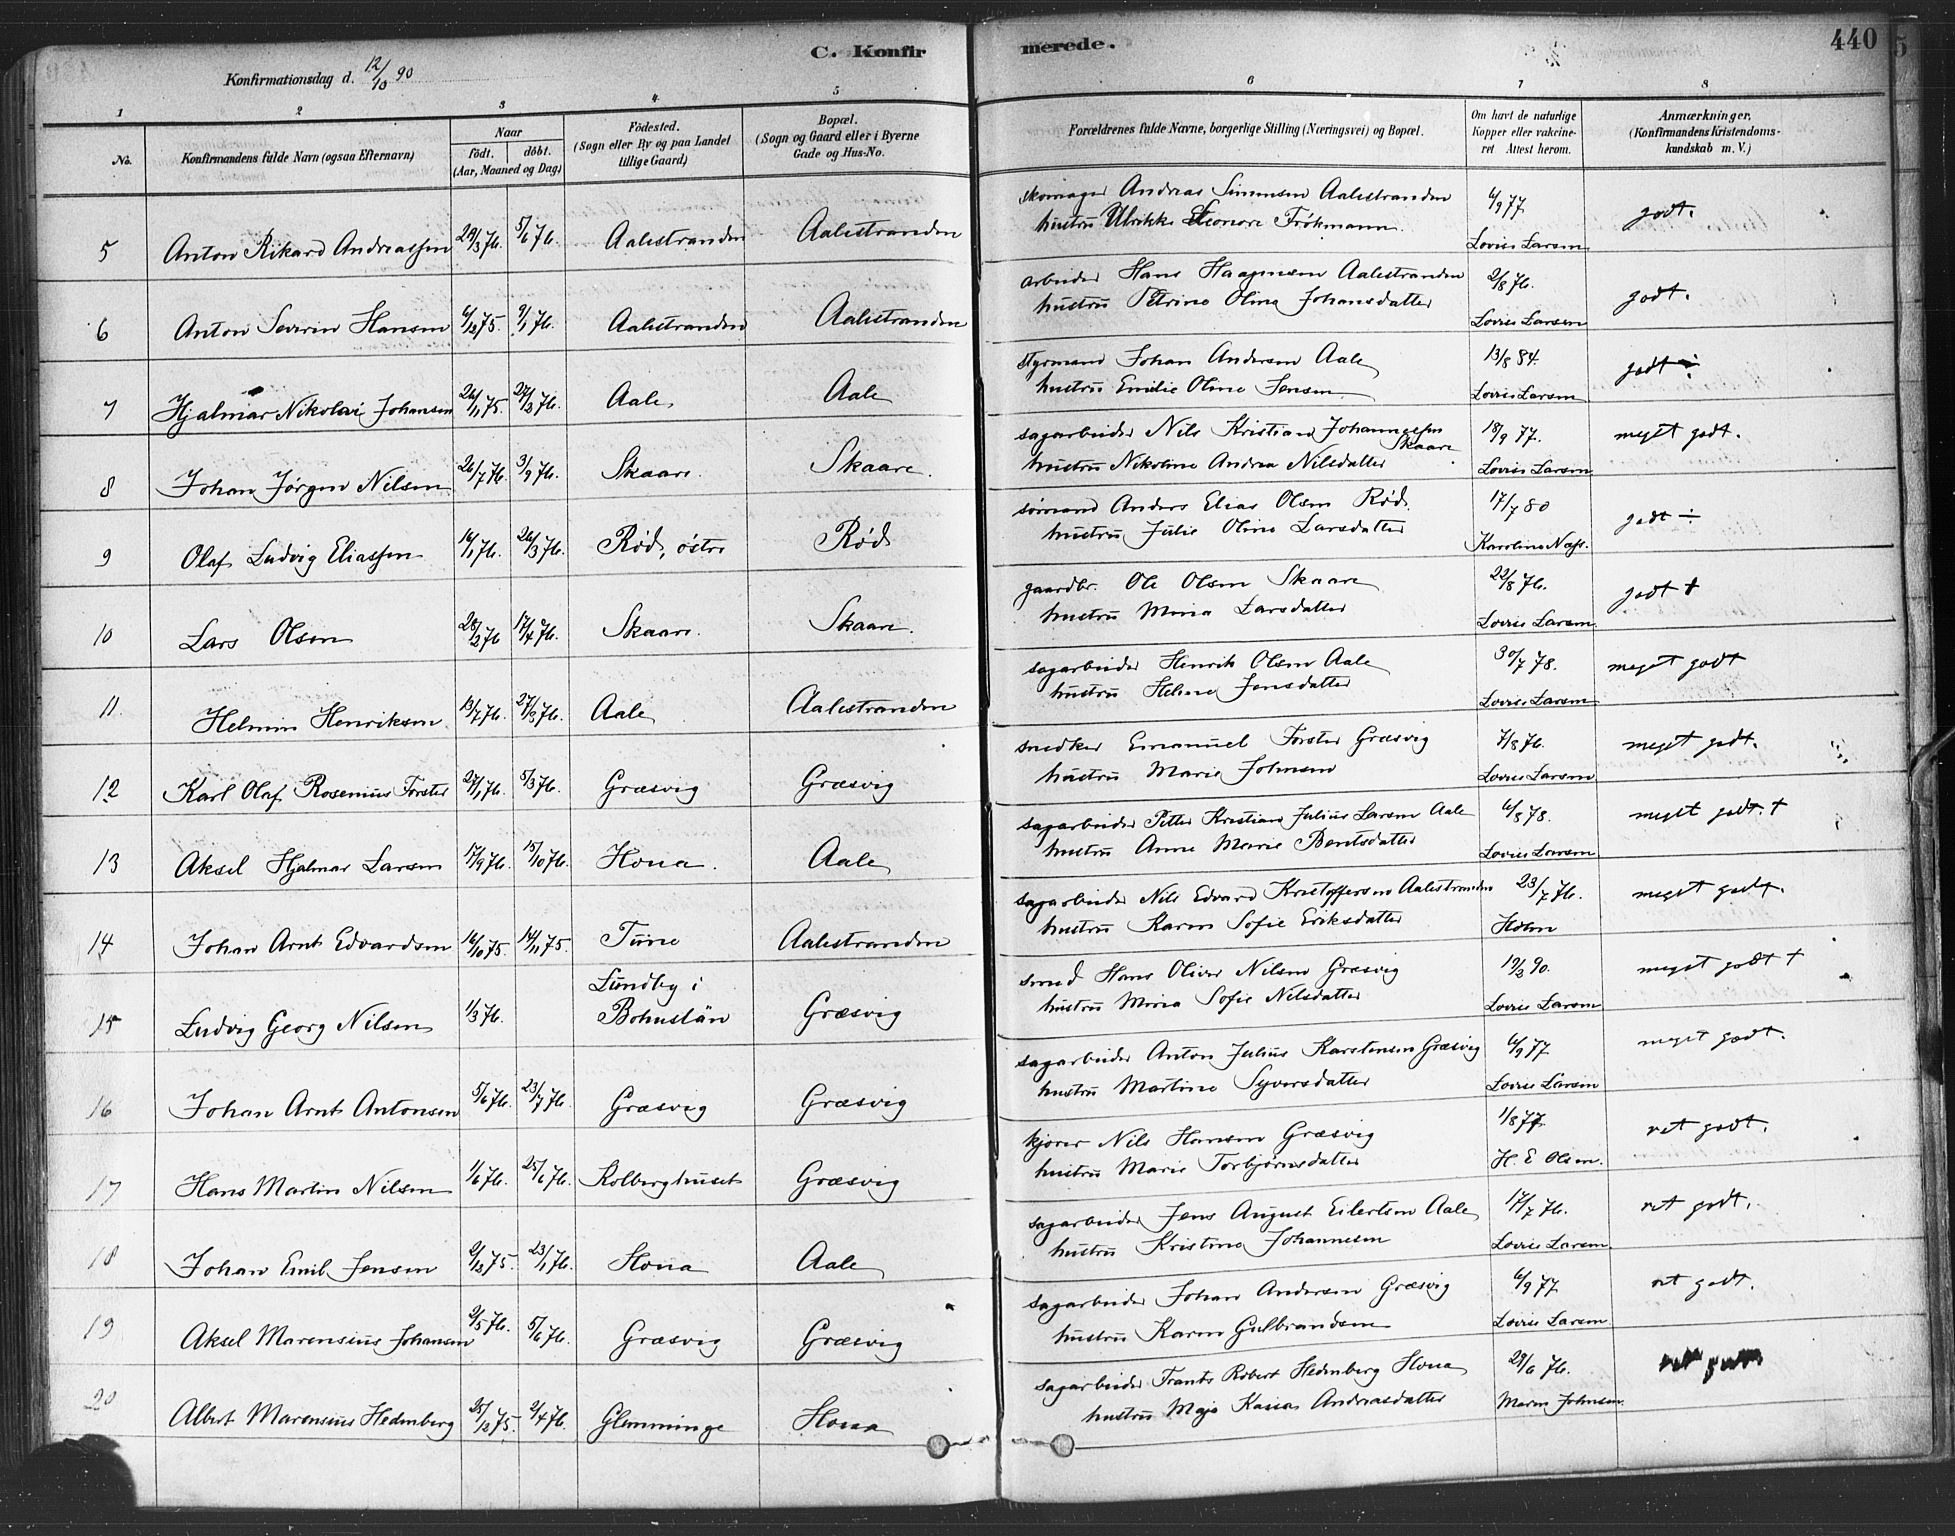 C. Konfirmerede.
440
Konfirmationsdag d. 12/10 90
1 2 3 4 5 6 7 8
No. | Konfirmandens fulde Navn (ogsaa Efternavn) | Naar födt. döbt. (Aar, Maaned og Dag) | Födested. (Sogn eller By og paa Landet tillige Gaard) | Bopæl. (Sogn og Gaard eller i Byerne Gade og Hus-No. | Forældrenes fulde Navne, borgerlige Stilling (Næringsvei) og Bopæl. | Om havt de naturlige Kopper eller vakcineret Attest herom. | Anmærkninger. (Konfirmandens Kristendomskundskab m. V.)
5 Anton Rikard Andreassen 29/3 76. 5/6 76. Aalestranden Aalestranden skomager Andreas Simensen Aalestranden 6/9 77 godt.
hustru Ulrikke Eleonore Frökmann Lovise Larsen
6 Anton Severin Hansen 6/12 75. 9/1 76. Aalestranden Aalestranden arbeider Hans Haagensen Aalestranden 2/8 76. godt.
hustru Petrine Olina Johansdatter Lovise Larsen
7 Hjalmar Nikolai Johansen 26/11 75. 27/2 76. Aale Aale styrmand Johan Andersen Aale 13/8 84. godt ÷
hustru Emilie Oline Jensen Lovise Larsen
8 Johan Jørgen Nilsen 26/7 76. 3/9 76. Skaare. Skaare. sagarbeider Nils Kristian Johannessen Skaare 18/9 77. meget godt.
hustru Nikoline Andrea Nilsdatter Lovise Larsen
9 Olaf Ludvig Eliassen 16/1 76. 26/3 76. Rød, östre Rød sömand Anders Elias Olsen Rød. 17/7 80 godt ÷
hustru Julie Oline Larsdatter Karoline Næss.
10 Lars Olsen 28/2 76 17/4 76. Skaare. Skaare. gaardbr. Ole Olsen Skaare 22/8 76. godt +
hustru Mina Larsdatter Lovise Larsen
11. Helmin Henriksen 13/7 76. 27/8 76. Aale Aalestranden sagarbeider Henrik Olsen Aale 30/7 78. meget godt
hustru Helene Jensdatter Lovise Larsen
12 Karl Olaf Rosenius Forster 27/1 76. 5/3 76. Græsvig Græsvig snedker Emanuel Forster Græsvig 7/8 76. meget godt.
hustru Marie Johnsen Lovise Larsen
13 Aksel Hjalmar Larsen 17/9 76. 15/10 76. Houa. Aale sagarbeider Petter Kristian Julius Larsen Aale 6/8 78. meget godt. +
hustru Anne Marie Bentsdatter Lovise Larsen
14 Johan Arnt Edvardsen 16/10 75. 14/11 75. Tune Aalestranden sagarbeider Nils Edvard Kristoffersen Aalestranden 23/7 76. meget godt.
hustru Karen Sofie Eriksdatter Holm
15 Ludvig Georg Nilsen 1/3 76. Lundby i Bohuslän Græsvig smed Hans Oliver Nilsen Græsvig 12/3 90. meget godt +
hustru Mina Sofie Nilsdatter Lovise Larsen
16 Johan Arnt Antonsen 5/6 76. 23/7 76. Græsvig Græsvig sagarbeider Anton Julius Karstensen Græsvig 6/9 77 meget godt.
hustru Martine Syversdatter Lovise Larsen
17 Hans Martin Nilsen 1/6 76. 25/6 76. Kolberghuset Græsvig kjører Nils Hansen Græsvig 1/8 77 ret godt.
hustru Marie Torbjørnsdatter H. E Olsen.
18 Johan Emil Jensen 2/12 75. 23/1 76. Houa Aale sagarbeider Jens August Eilertsen Aale 17/7 76. ret godt.
hustru Kristine Johannesen Lovise Larsen.
19 Aksel Marensius Johansen 2/5 76. 5/6 76. Græsvig Græsvig sagarbeider Johan Andersen Græsvig 6/9 77 ret godt.
hustru Karen Gulbrandsen Lovise Larsen
20 Albert Marensius Hedenberg 25/12 75. 2/4 76. Glemminge Houa sagarbeider Frants Robert Hedenberg Houa 29/6 76. ret godt.
hustru Maja Kaisa Andreasdatter Maren Johnsen.